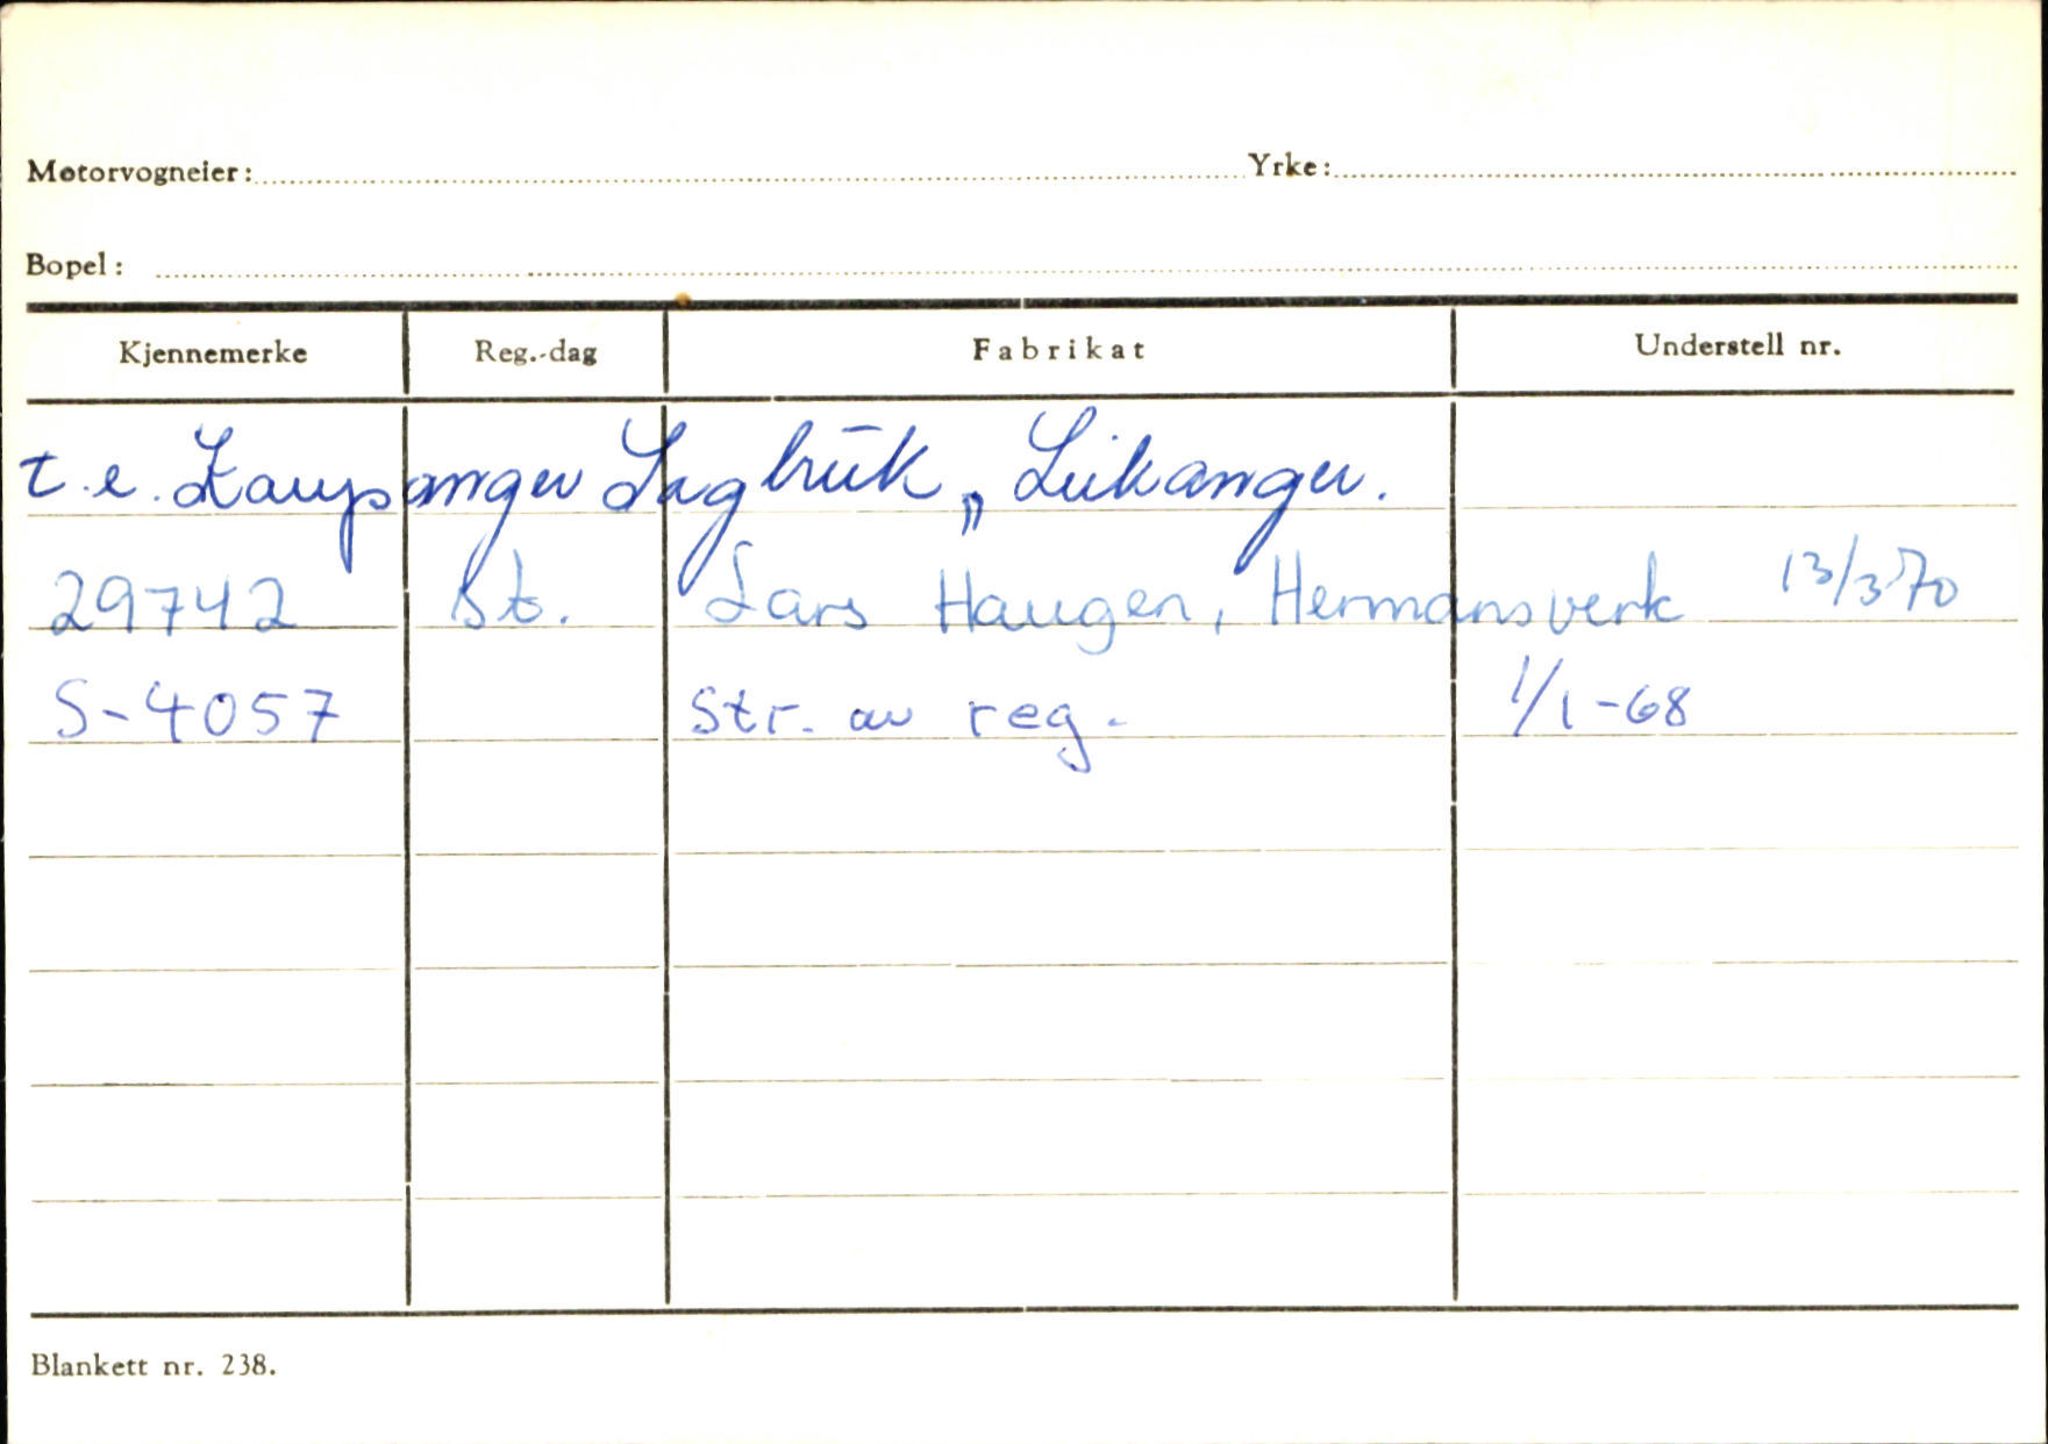 Motorvogneier: Yrke:
Bopel:
Kjennemerke Reg.-dag Fabrikat Understell nr.
t.e. Kaupanger Sagbruk, Leikanger.
29742 St. Lars Haugen, Hermansverk 13/3 70
S-4057 Str. av reg. 1/1-68
Blankett nr. 238.